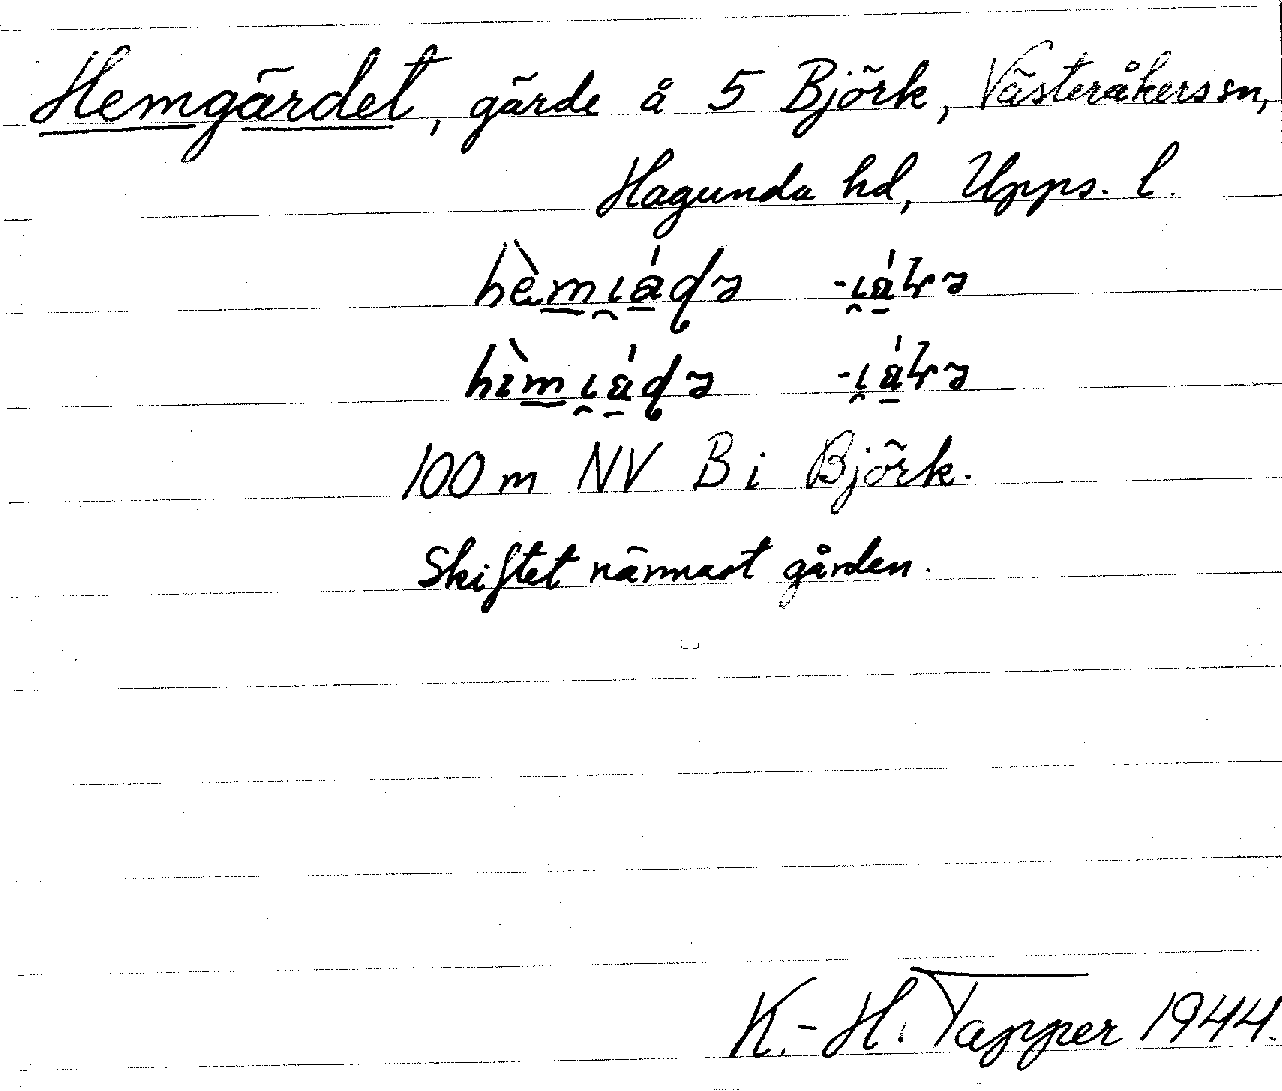 Hemgärdet, gärde å 5 Björk, Västeråkers sn,
Hagunda hd, Upps. l.
100 m NV B i Björk.
Skiftet närmast gården.
K.-H. Tapper 1944.